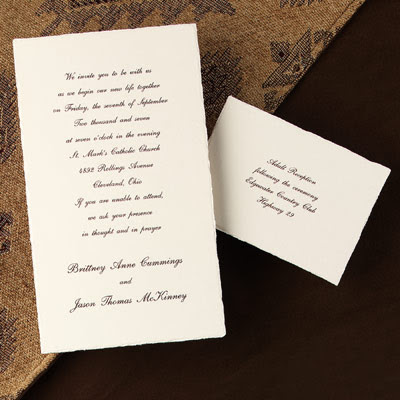 We invite you to be with us
as we begin our new life together
on Friday, the seventh of September
Two thousand and seven
at seven o'clock in the evening
St. Mark's Catholic Church
4892 Rollings Avenue
Cleveland, Ohio
If you are unable to attend,
we ask your presence
in thought and in prayer
Brittney Anne Cummings
and
Jason Thomas McKinney
Adult Reception
following the ceremony
Edgewater Country Club
Highway 29